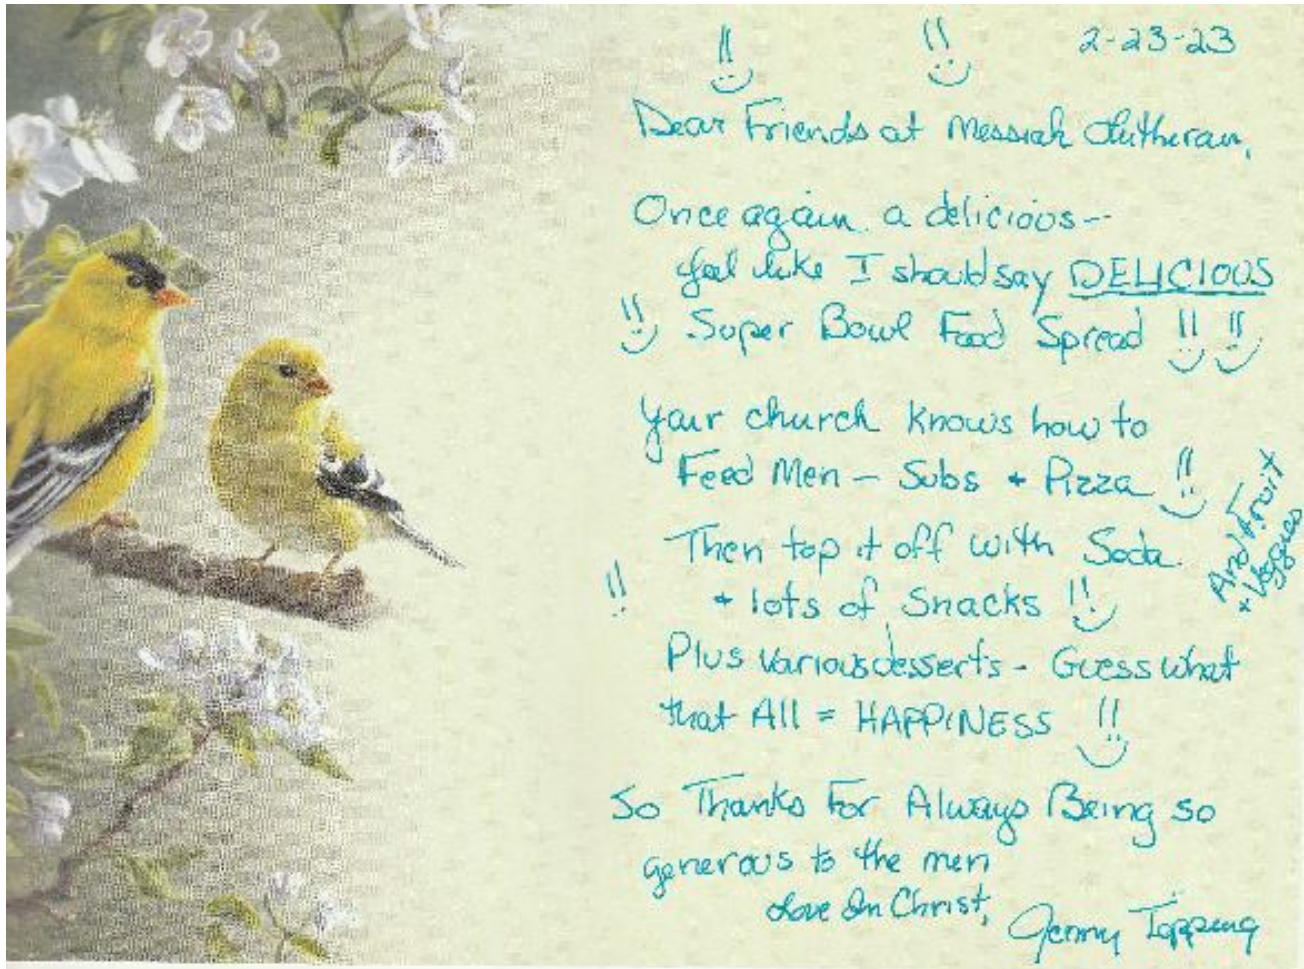 2-23-23
Dear Friends at Messiah Lutheran,
Once again a delicious--
feel like I should say DELICIOUS
Super Bowl Food Spread !! !!
Your church knows how to
Feed Men - Subs + Pizza !!
And Fruit
+ Veggies
Then top it off with Soda
!! + lots of Snacks !!
Plus various desserts - Guess what
that All = HAPPINESS !!
So Thanks For Always Being so
generous to the men
Love In Christ,
Jenny Topping